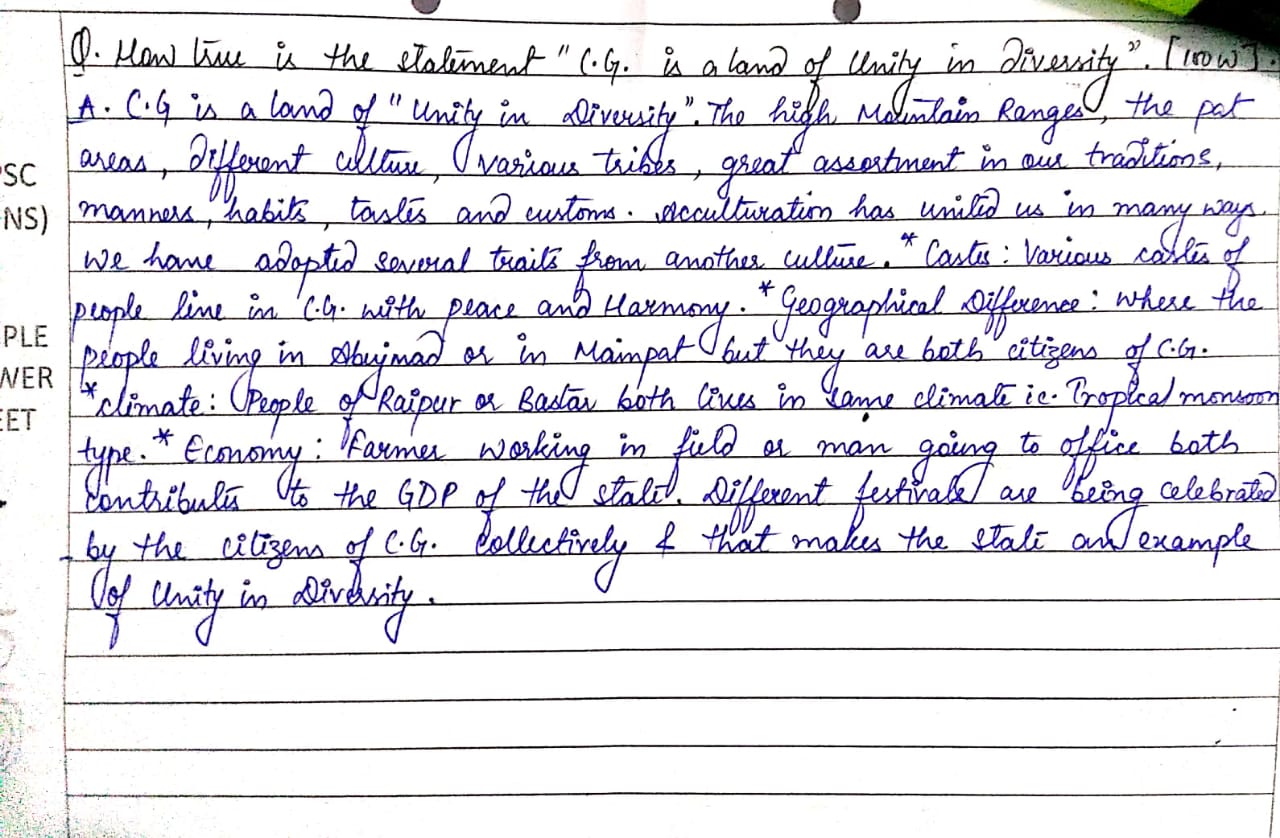 Q. How true is the statement "C.G. is a land of Unity in Diversity". [100W].
A. C.G is a land of "Unity in Diversity". The high Mountain Ranges, the pat
areas, Different culture, various tribes, great assortment in our traditions,
manners, habits, tastes and customs. Acculturation has united us in many ways.
We have adopted several traits from another culture. * Castes : Various castes of
people live in C.G. with peace and Harmony. * Geographical Difference : where the
people living in Abujmad or in Mainpat but they are both citizens of C.G.
* climate : People of Raipur or Bastar both lives in same climate ie. Tropical monsoon
type. * Economy : Farmer working in field or man going to office both
Contributes to the GDP of the state. Different festivals are being celebrated
by the citizens of C.G. Collectively & that makes the state an example
of Unity in Diversity.
SC
NS)
PLE
WER
EET